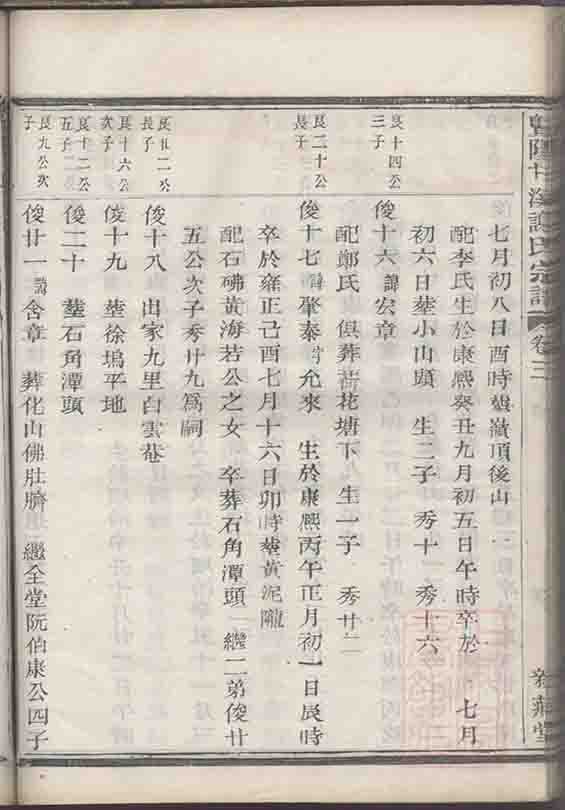 暨陽 溪 氏宗譜 卷三
七月初八日酉時 嶺頂後山
配李氏生於康熙癸丑九月初五日午時卒於 七月
初六日塟小山頭 生二子 秀十 秀十六
良十四公三子
俊十六 諱宏章
配鄭氏 俱葬荷花塘下 生一子 秀廿二
良二十公長子
俊十七 諱肇泰 允來 生於康熙丙午正月初一日辰時
卒於雍正己酉七月十六日卯時塟黃泥隴
配石砩黃海若公之女 卒葬石角潭頭 繼二弟俊廿
五公次子秀廿九爲嗣
良廿二公長子
俊十八 出家九里白雲菴
良十六公次子
俊十九 塟徐塢平地
良十二公五子
俊二十 塟石角潭頭
良九公次子
俊廿一 諱含章 葬化山佛肚臍 繼全堂阮伯康公四子